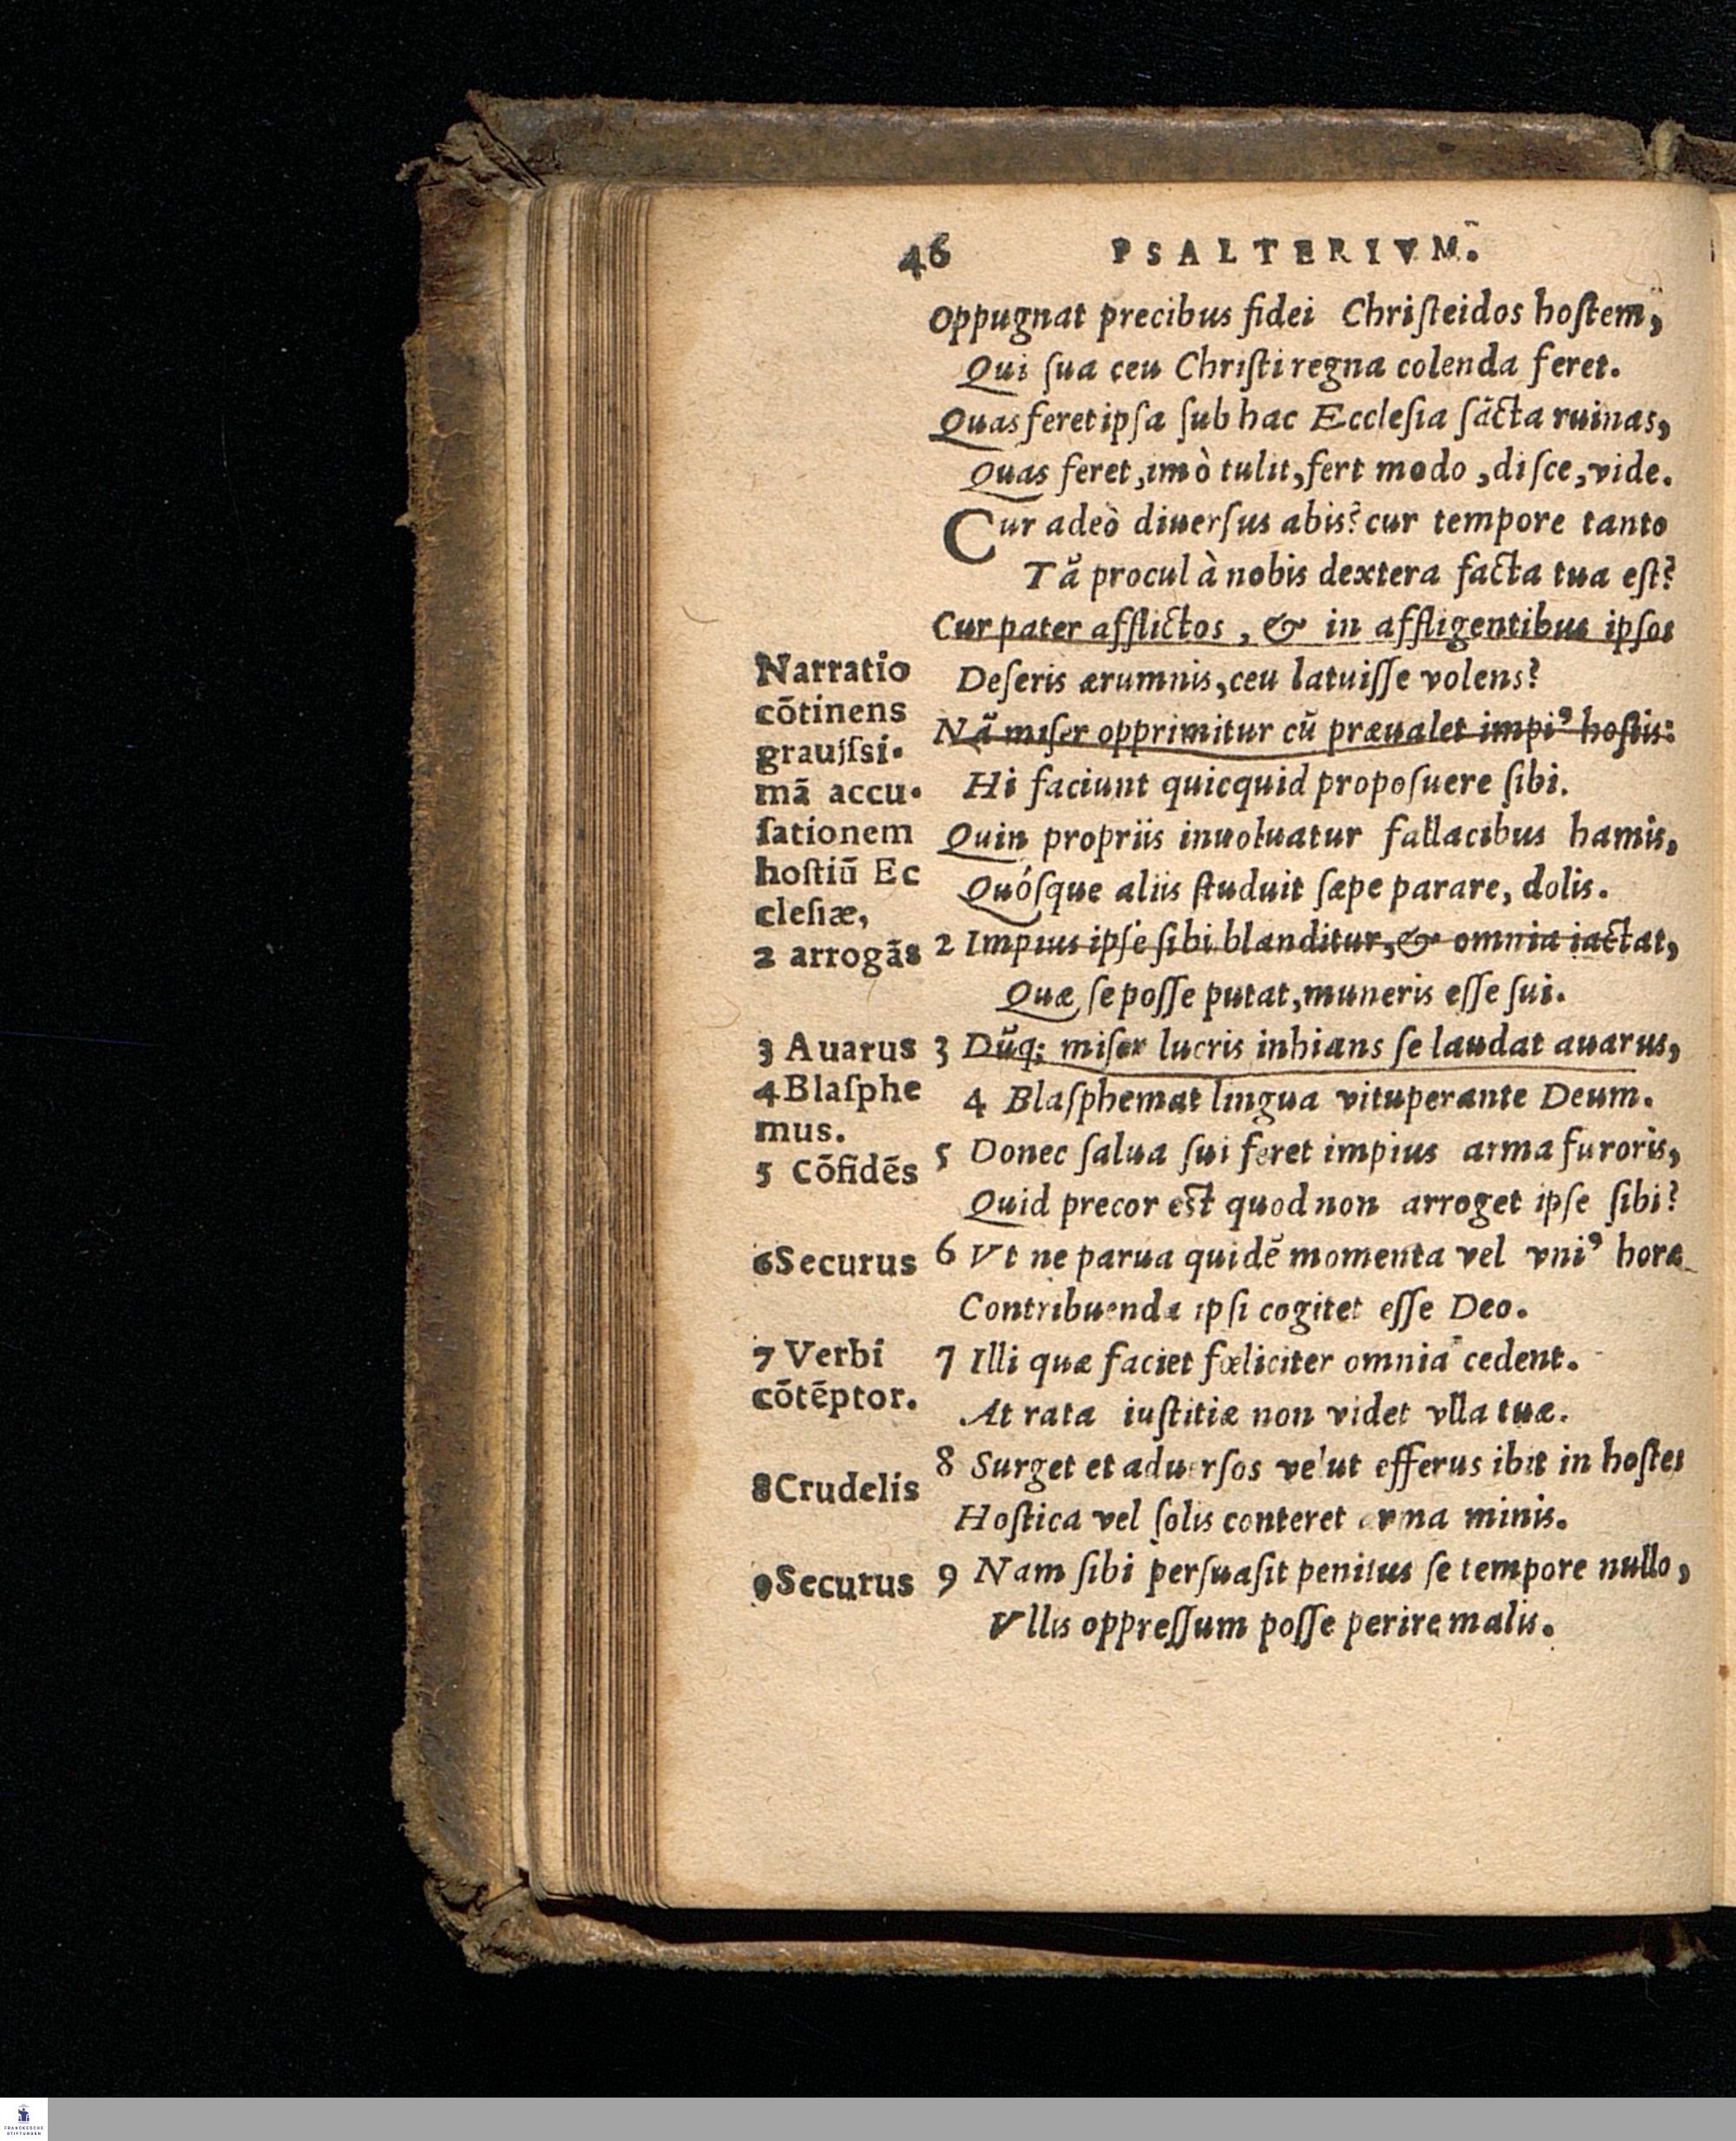 46 PSALTERIVM.
Oppugnat precibus fidei Chriſteidos hoſtem,
Qui ſua ceu Chriſti regna colenda feret.
Quas feret ipſa ſub hac Eccleſia ſācta ruinas,
Quas feret, imò tulit, fert modo, diſce, vide.
Cur adeò diuerſus abis? cur tempore tanto
Tā procul à nobis dextera facta tua eſt?
Cur pater afflictos, & in affligentibus ipſos
Deſeris ærumnis, ceu latuiſſe volens?
Nā miſer opprimitur cū præualet impiꝰ hoſtis:
Hi faciunt quicquid propoſuere ſibi.
Quin propriis inuoluatur fallacibus hamis,
Quóſque aliis ſtuduit ſæpe parare, dolis.
2 Impius ipſe ſibi blanditur, & omnia iactat,
Quæ ſe poſſe putat, muneris eſſe ſui.
3 Dūq; miſer lucris inhians ſe laudat auarus,
4 Blaſphemat lingua vituperante Deum.
5 Donec ſalua ſui feret impius arma furoris,
Quid precor eſt quod non arroget ipſe ſibi?
6 Vt ne parua quidē momenta vel vniꝰ horæ
Contribuenda ipſi cogitet eſſe Deo.
7 Illi quæ faciet fœliciter omnia cedent.
At rata iuſtitiæ non videt vlla tuæ.
8 Surget et aduerſos velut efferus ibit in hoſtes
Hoſtica vel ſolis conteret arma minis.
9 Nam ſibi perſuaſit penitus ſe tempore nullo,
Vllis oppreſſum poſſe perire malis.
Narratio
cōtinens
grauiſsi-
mā accu-
ſationem
hoſtiū Ec
cleſiæ,
2 arrogās
3 Auarus
4 Blaſphe
mus.
5 Cōfidēs
6 Securus
7 Verbi
cōtēptor.
8 Crudelis
9 Securus
FRANCKESCHE
STIFTUNGEN